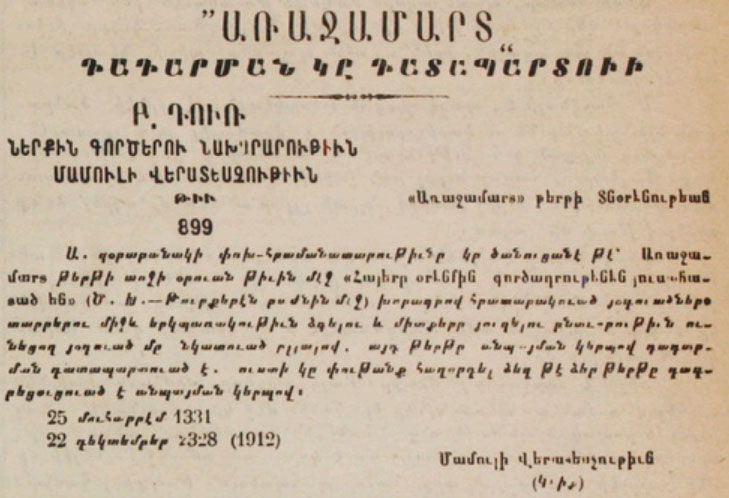 "ԱՌԱՋԱՄԱՐՏ"
ԴԱԴԱՐՄԱՆ ԿԸ ԴԱՏԱՊԱՐՏՈՒԻ
Բ. ԴՈՒՌ
ՆԵՐՔԻՆ ԳՈՐԾԵՐՈՒ ՆԱԽԱՐԱՐՈՒԹԻՒՆ
ՄԱՄՈՒԼԻ ՎԵՐԱՏԵՍՉՈՒԹԻՒՆ
ԹԻՒ
899
«Առաջամարտ» թերթի Տնօրէնութեան
Ա. զօրաբանակի փոխ-հրամանատարութիւնը կը ծանուցանէ թէ՝ Առաջա-
մարտ թերթի առջի օրուան թիւին մէջ «Հայերը օրէնքին գործադրութենէն յուսահա-
տած են» (Ծ. Խ.—Թուրքերէն բաժնին մէջ) խորագրով հրատարակուած յօդուածները
տարրերու միջեւ երկպառակութիւն ձգելու և միտքերը յուզելու բնաւորութիւն ու-
նեցող յօդուած մը նկատուած ըլլալով. այդ թերթը անպայման կերպով դադար-
ման դատապարտուած է. ուստի կը փութանք հաղորդել ձեզ թէ ձեր թերթը դադ-
րեցուցուած է անպայման կերպով:
25 մուհարրէմ 1331
22 դեկտեմբեր 1328 (1912)
Մամուլի Վերատեսչութիւն